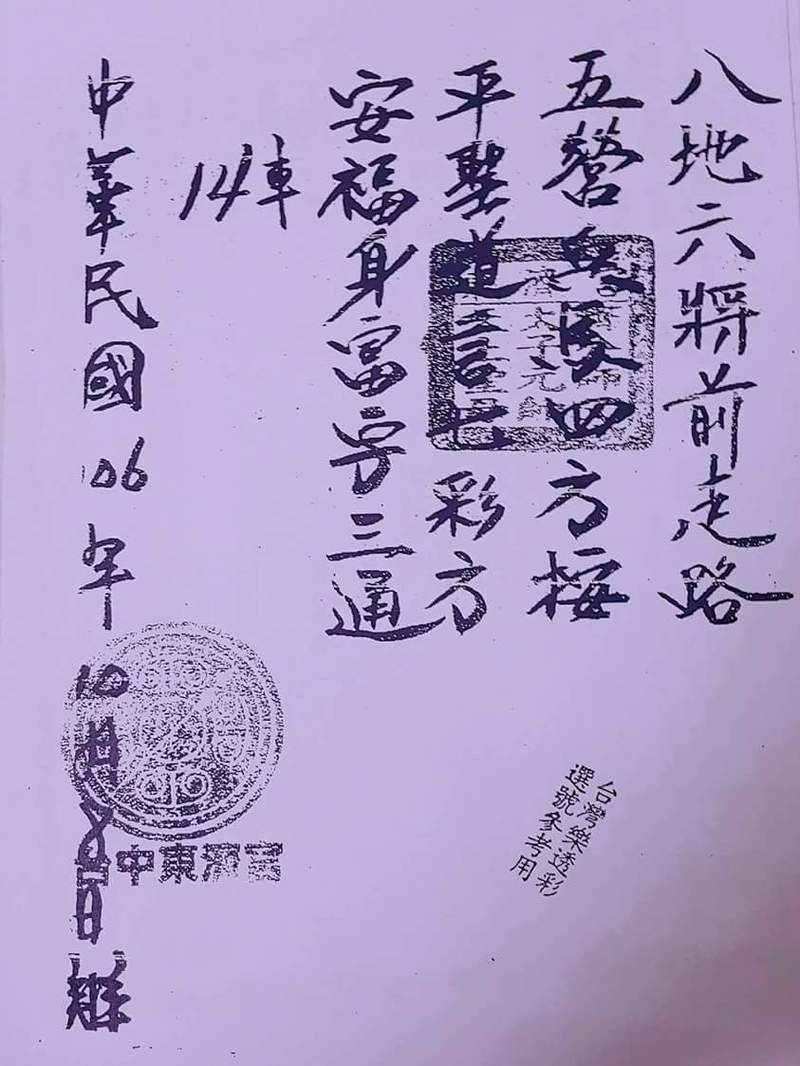 八地六將前走路
五營兵將四方按
平聖道言七彩方
安福身富字三通
14車
中華民國106年10月8日
台中東
台灣樂透彩
選號參考用